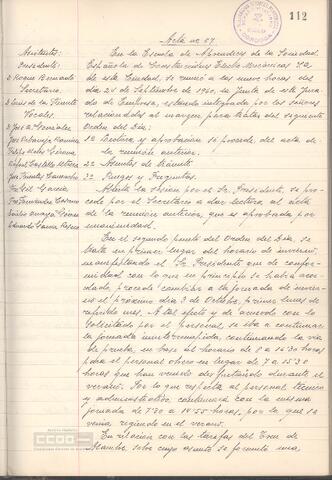 112
Acta nº 67
Asistentes:
Presidente:
D. Roque Bernardo
Secretario:
D. Luis de la Fuente
Vocales:
D. José A. González
Rafael Castillo
José Fuentes Camacho
José Gil García
Eduardo García
En la Escuela de Aprendices de la Sociedad
Española de Construcciones Electro Mecánicas S.A.
de esta Ciudad, se reunió a las nueve horas del
día 24 de Septiembre de 1960, la Junta de este Jurado
de Empresa, estando integrada por los señores
relacionados al margen, para tratar del siguiente
Orden del Día:
1º Lectura y aprobación si procede del acta de
la reunión anterior.
2º Asuntos de trámite
3º Ruegos y Preguntas.
Abierta la sesión por el Sr. Presidente, se pro-
cede por el Secretario a dar lectura al acta
de la reunión anterior, que es aprobada por
unanimidad.
En el segundo punto del Orden del Día, se
trata en primer lugar del horario de invierno,
manifestando el Sr. Presidente que de confor-
midad con lo que en principio se había acor-
dado, procede cambiar a la jornada de invier-
no el próximo día 3 de Octubre, primer lunes de
referido mes. A tal efecto y de acuerdo con lo
solicitado por el personal, se iba a continuar
la jornada ininterrumpida, continuando la vía
de prueba, en base al horario de 8 a 15'30 horas
para el personal obrero en lugar de 7 a 15'30
horas que han venido disfrutando durante el
verano. Por lo que respecta al personal técnico
y administrativo, continuará con la misma
jornada de 7'30 a 14'55 horas, por la que se
venía rigiendo en el verano.
En relación con las tarifas del Tren de
Alambre, sobre cuyo asunto se formuló una
CCOO